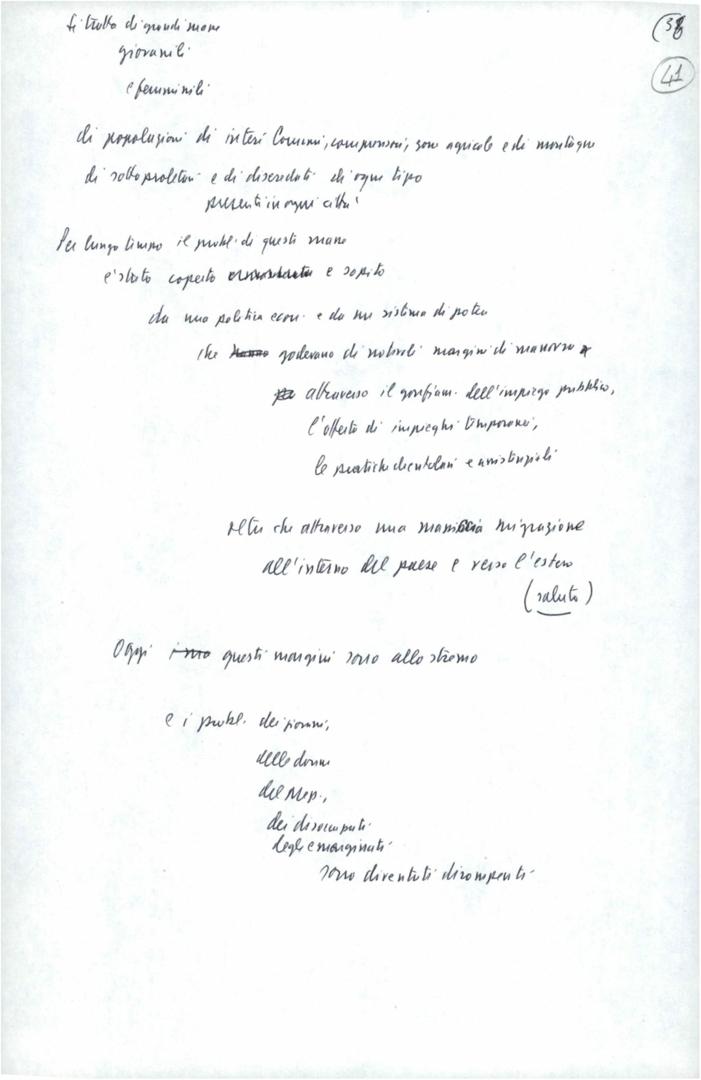 (38
41
Si tratta di grandi masse
giovanili
e femminili
di popolazioni di interi Comuni, comprensori, zone agricole e di montagna
di sottoproletari e di diseredati di ogni tipo
presenti in ogni città
Per lungo tempo il probl. di queste masse
è stato coperto e sopito
da una politica econ. e da un sistema di potere
che hanno godevano di notevoli margini di manovra
attraverso il gonfiam. dell'impiego pubblico,
l'offerta di impieghi temporanei,
le pratiche clientelari e assistenziali
oltre che attraverso una massiccia migrazione
all'interno del paese e verso l'estero
(saluto)
Oggi questi margini sono allo stremo
e i probl. dei giovani,
delle donne
del Mezz.,
dei disoccupati
degli emarginati
sono diventati dirompenti